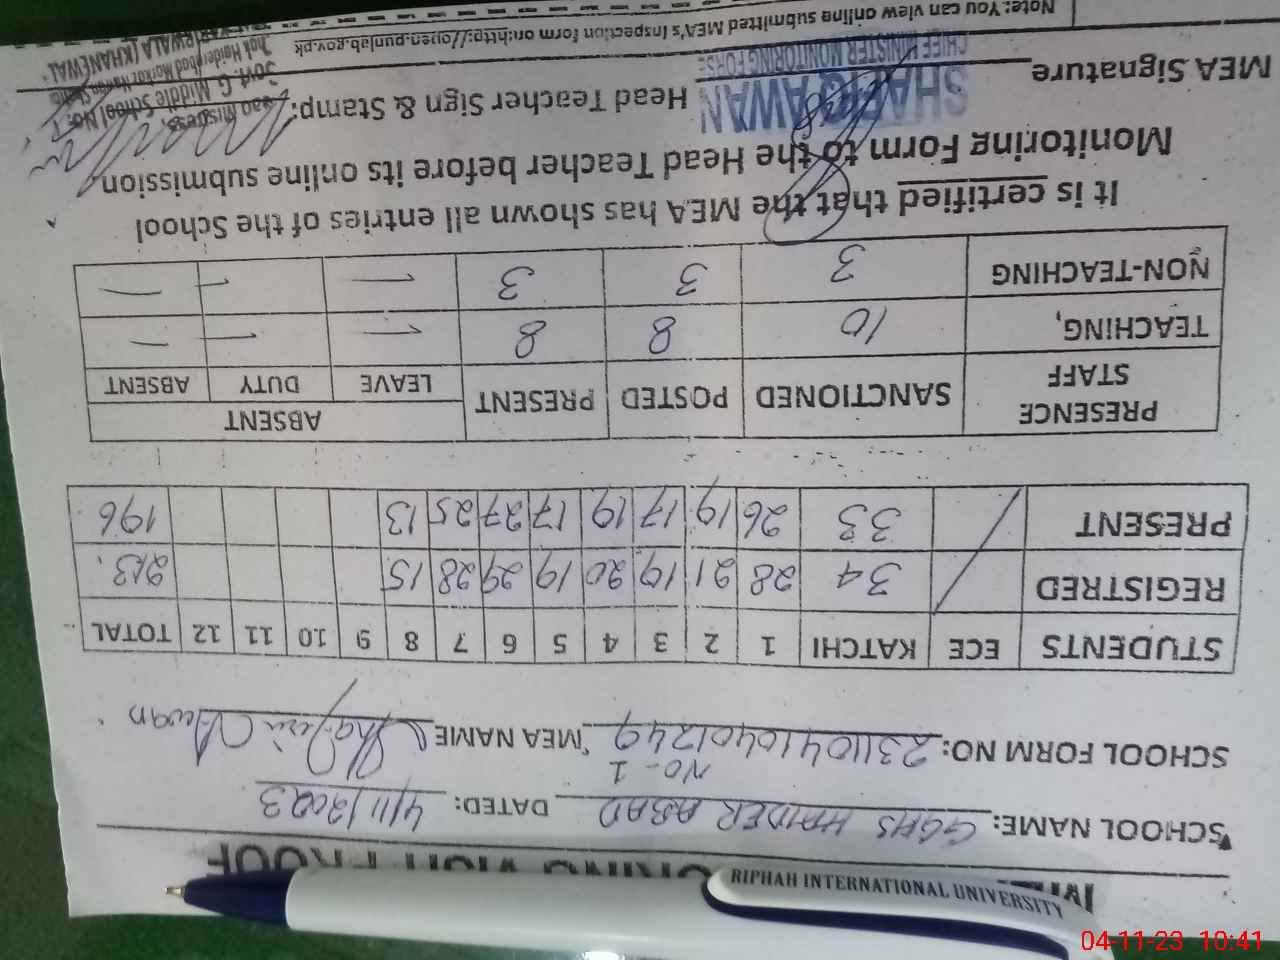 MONITORING VISIT PROOF
SCHOOL NAME: GGHS HAIDER ABAD NO-1 DATED: 4/11/2023
SCHOOL FORM NO: 23110410401249 MEA NAME Shafiq Awan
STUDENTS ECE KATCHI 1 2 3 4 5 6 7 8 9 10 11 12 TOTAL
REGISTRED 34 28 21 19 20 19 29 28 15 213
PRESENT 33 26 19 17 19 17 27 25 13 196
PRESENCE STAFF SANCTIONED POSTED PRESENT ABSENT
LEAVE DUTY ABSENT
TEACHING, 10 8 8 — — —
NON-TEACHING 3 3 3 — — —
It is certified that the MEA has shown all entries of the School
Monitoring Form to the Head Teacher before its online submission
MEA Signature Head Teacher Sign & Stamp:
SHAFIQ AWAN
CHIEF MINISTER MONITORING FORSE
Head Mistress,
Govt. G. Middle School No. 1
Chak Haiderabad Markaz
KABIRWALA (KHANEWAL)
Note: You can view online submitted MEA's Inspection form on:http://open.punjab.gov.pk
RIPHAH INTERNATIONAL UNIVERSITY
04-11-23 10:41